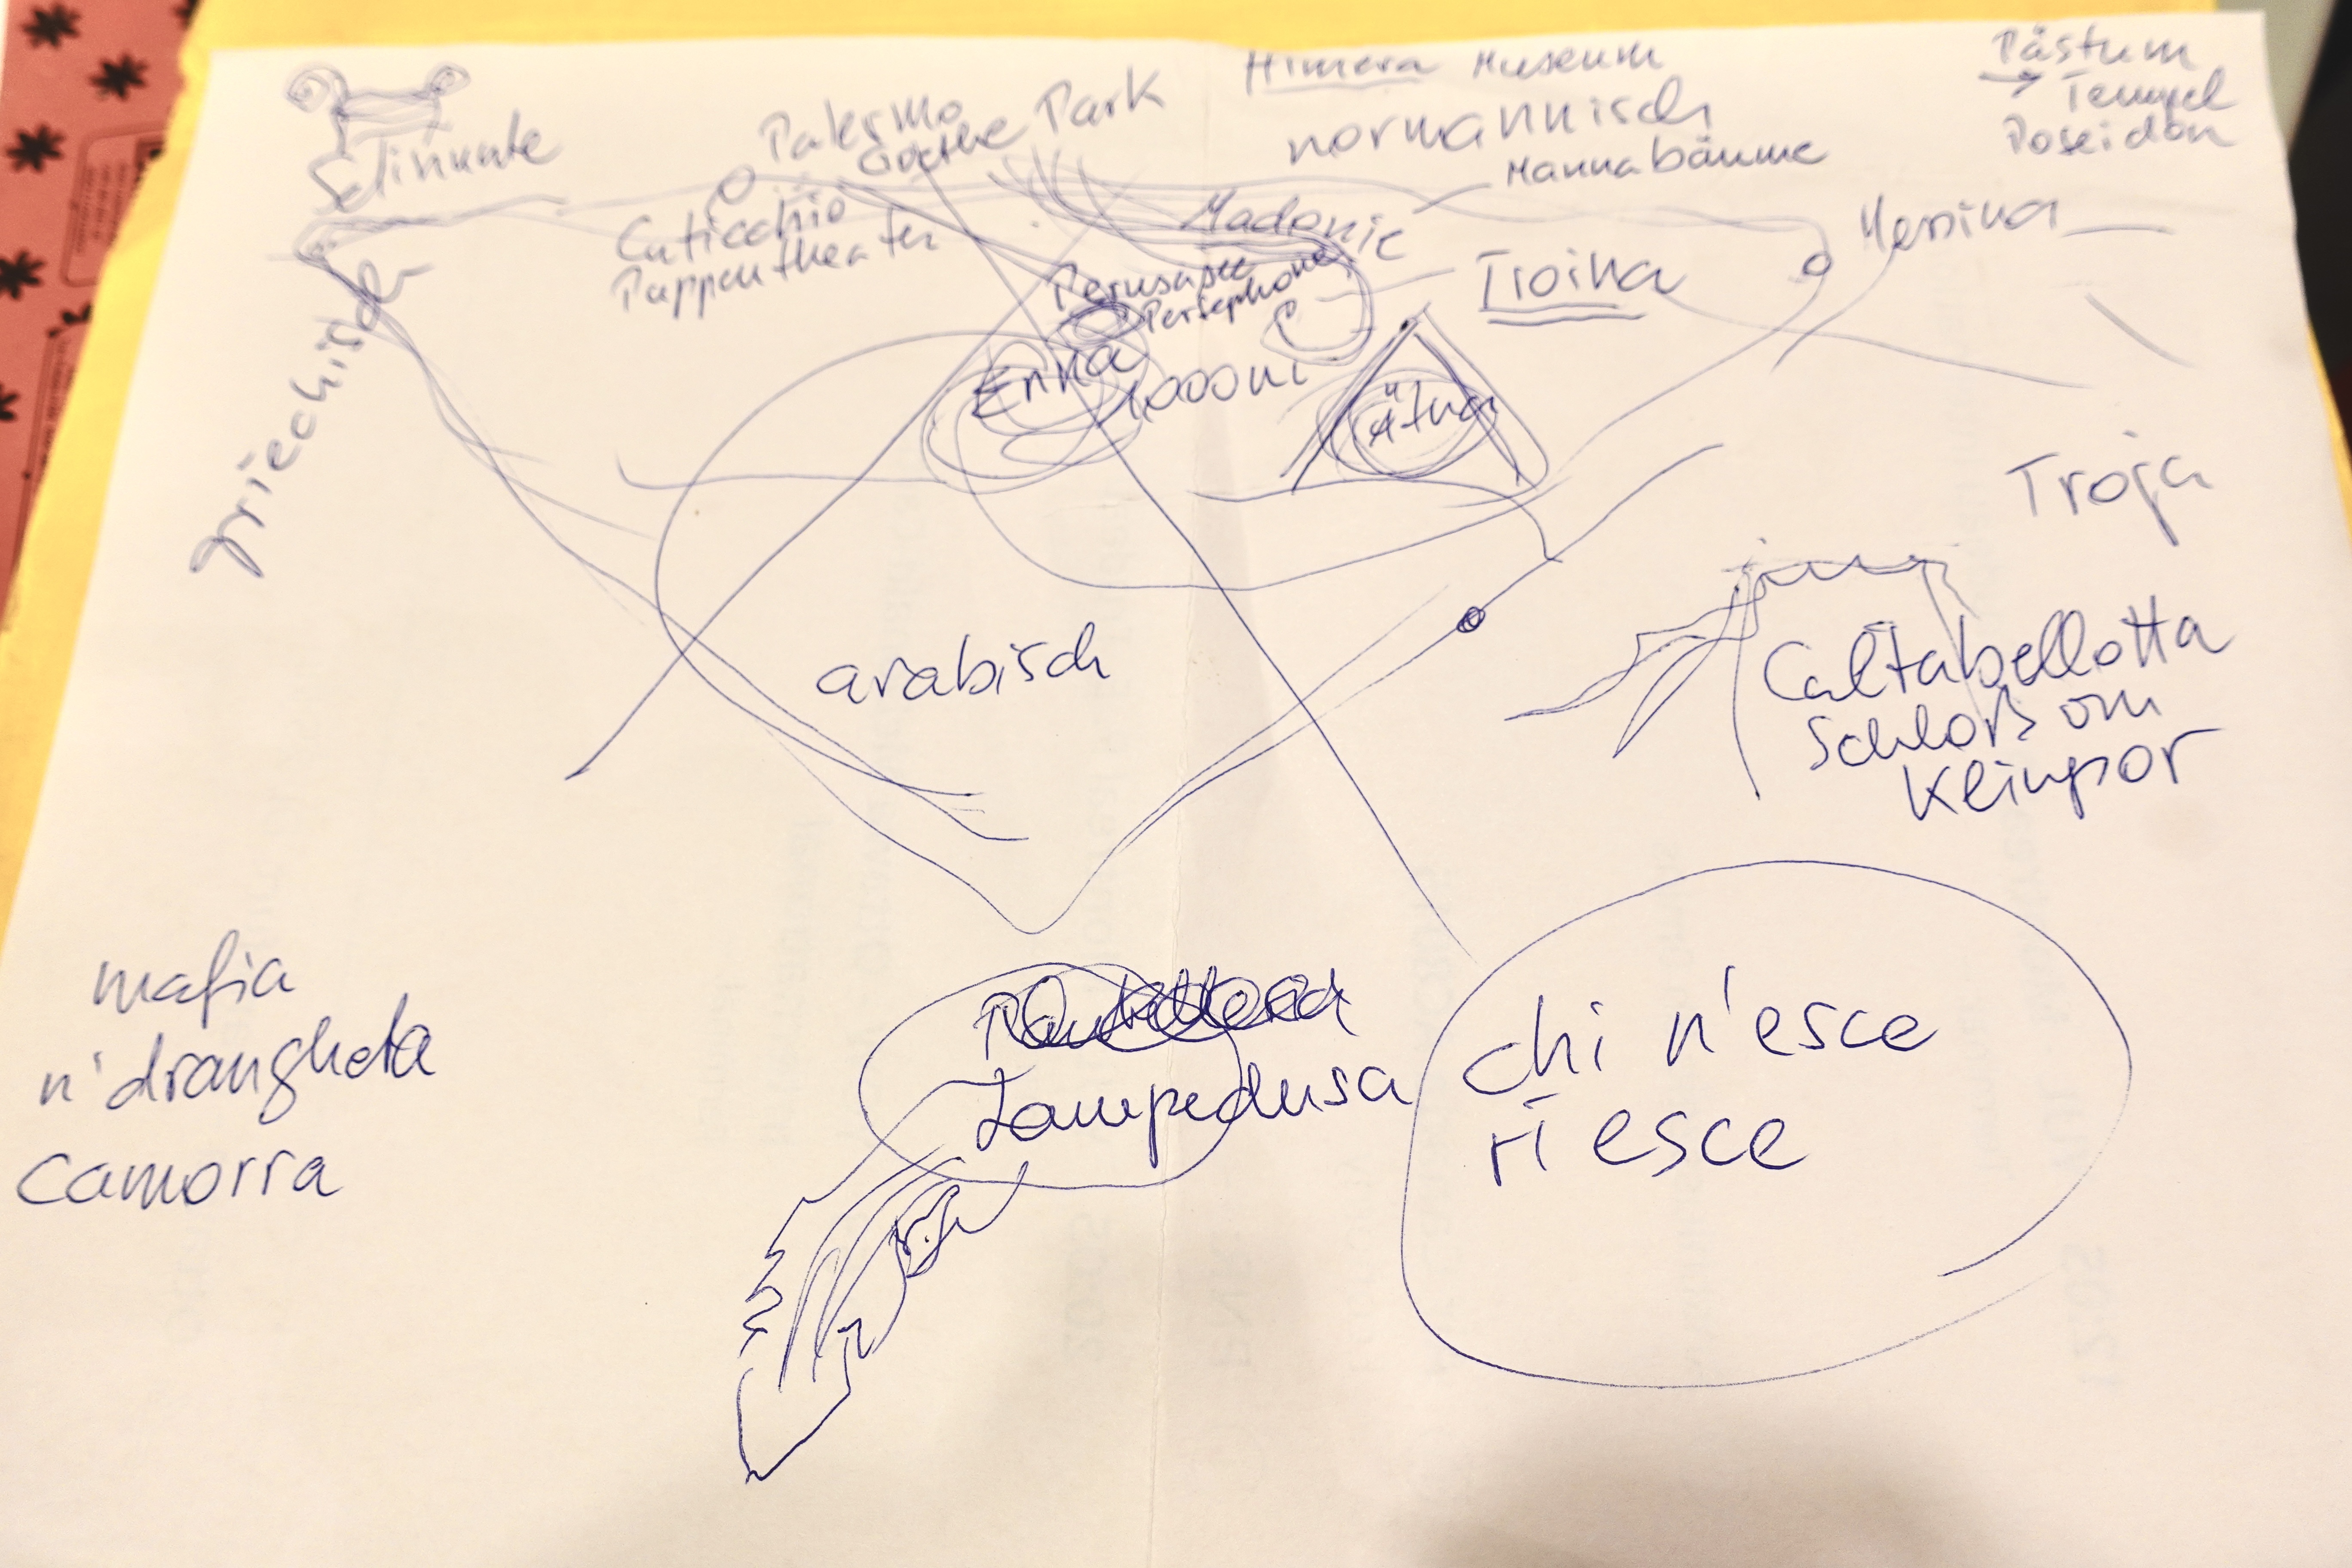 Himera Museum
Pästum
→ Tempel
Poseidon
Palermo
Goethe Park
normannisch
Mannabäume
Selinunte
Cuticchio
Puppentheater
Madonie
Messina
Troina
Persephone
griechisch
Enna
1000m
Ätna
Troja
arabisch
Caltabellotta
Schloß
mafia
n'drangheta
camorra
Lampedusa
chi n'esce
riesce